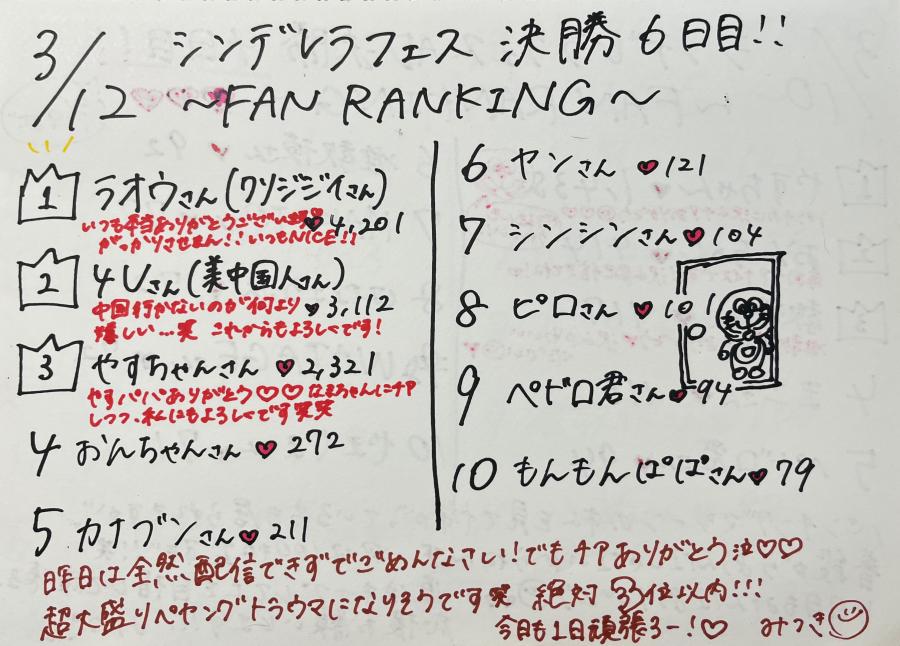 3/12 シンデレラフェス 決勝 6日目!!
〜FAN RANKING〜
1 ラオウさん(クソジジイさん)
いつも本当ありがとうございます♥ ♥4,201
がっかりさせません!!いつもNICE!!
2 4Uさん(美中国人さん)
中国行かないのが何より ♥3,112
嬉しい…笑 これからもよろしくです!
3 やすちゃんさん ♥2,321
やすパパありがとう♡♡ なまちゃんにチア
しつつ、私にもよろしくです笑笑
4 おんちゃんさん ♥272
5 カナブンさん ♥211
6 ヤンさん ♥121
7 シンシンさん ♥104
8 ピロさん ♥101
9 ペドロ君さん ♥94
10 もんもんぱぱさん ♥79
昨日は全然配信できずでごめんなさい!でもチアありがとう泣♡♡
超大盛りペヤングトラウマになりそうです笑 絶対3位以内!!!
今日も1日頑張ろー!♡ みつき